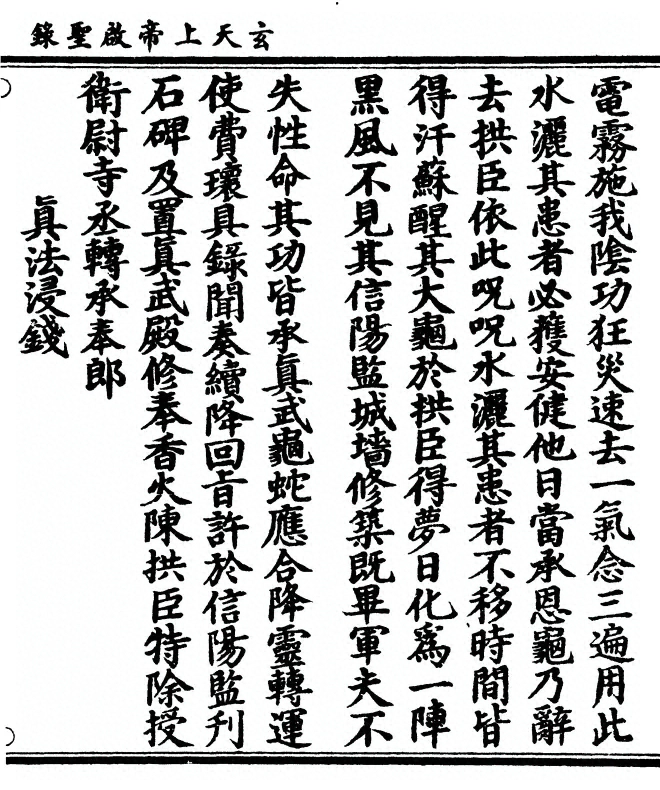 玄天上帝啟聖錄
電霧施我陰功狂災速去一氣念三遍用此
水灑其患者必獲安健他日當承恩龜乃辭
去拱臣依此呪呪水灑其患者不移時間皆
得汗蘇醒其大龜於拱臣得夢日化爲一陣
黑風不見其信陽監城墻修築既畢軍夫不
失性命其功皆承眞武龜蛇應合降靈轉運
使費瓌具錄聞奏續降回旨許於信陽監刋
石碑及置眞武殿修奉香火陳拱臣特除授
衛尉寺丞轉承奉郎
眞法浸錢